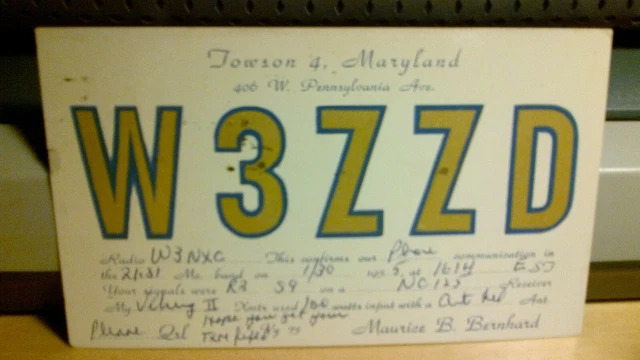 Towson 4, Maryland
406 W. Pennsylvania Ave.
W3ZZD
Radio W3NXC This confirms our Phone communication in
the 21.31 Mc. band on 1/30 195 5, at 1614 EST
Your signals were R5 S9 on a NC 125 Receiver
My Viking II Xmtr used 100 watts input with a Ant
Hope you get your
Please Qsl 73 Maurice B. Bernhard